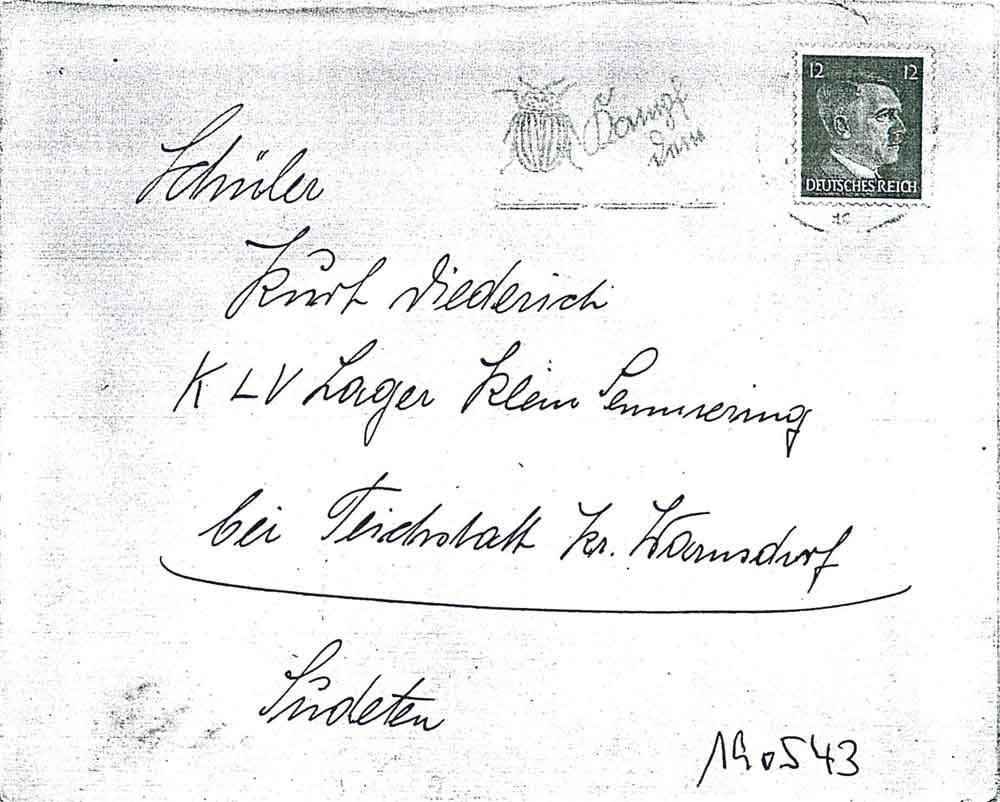 12 12
Kampf
dem
DEUTSCHES REICH
Schüler
Kurt Diederich
KLV Lager Klein Semmering
bei Teichstatt Kr. Warnsdorf
Sudeten